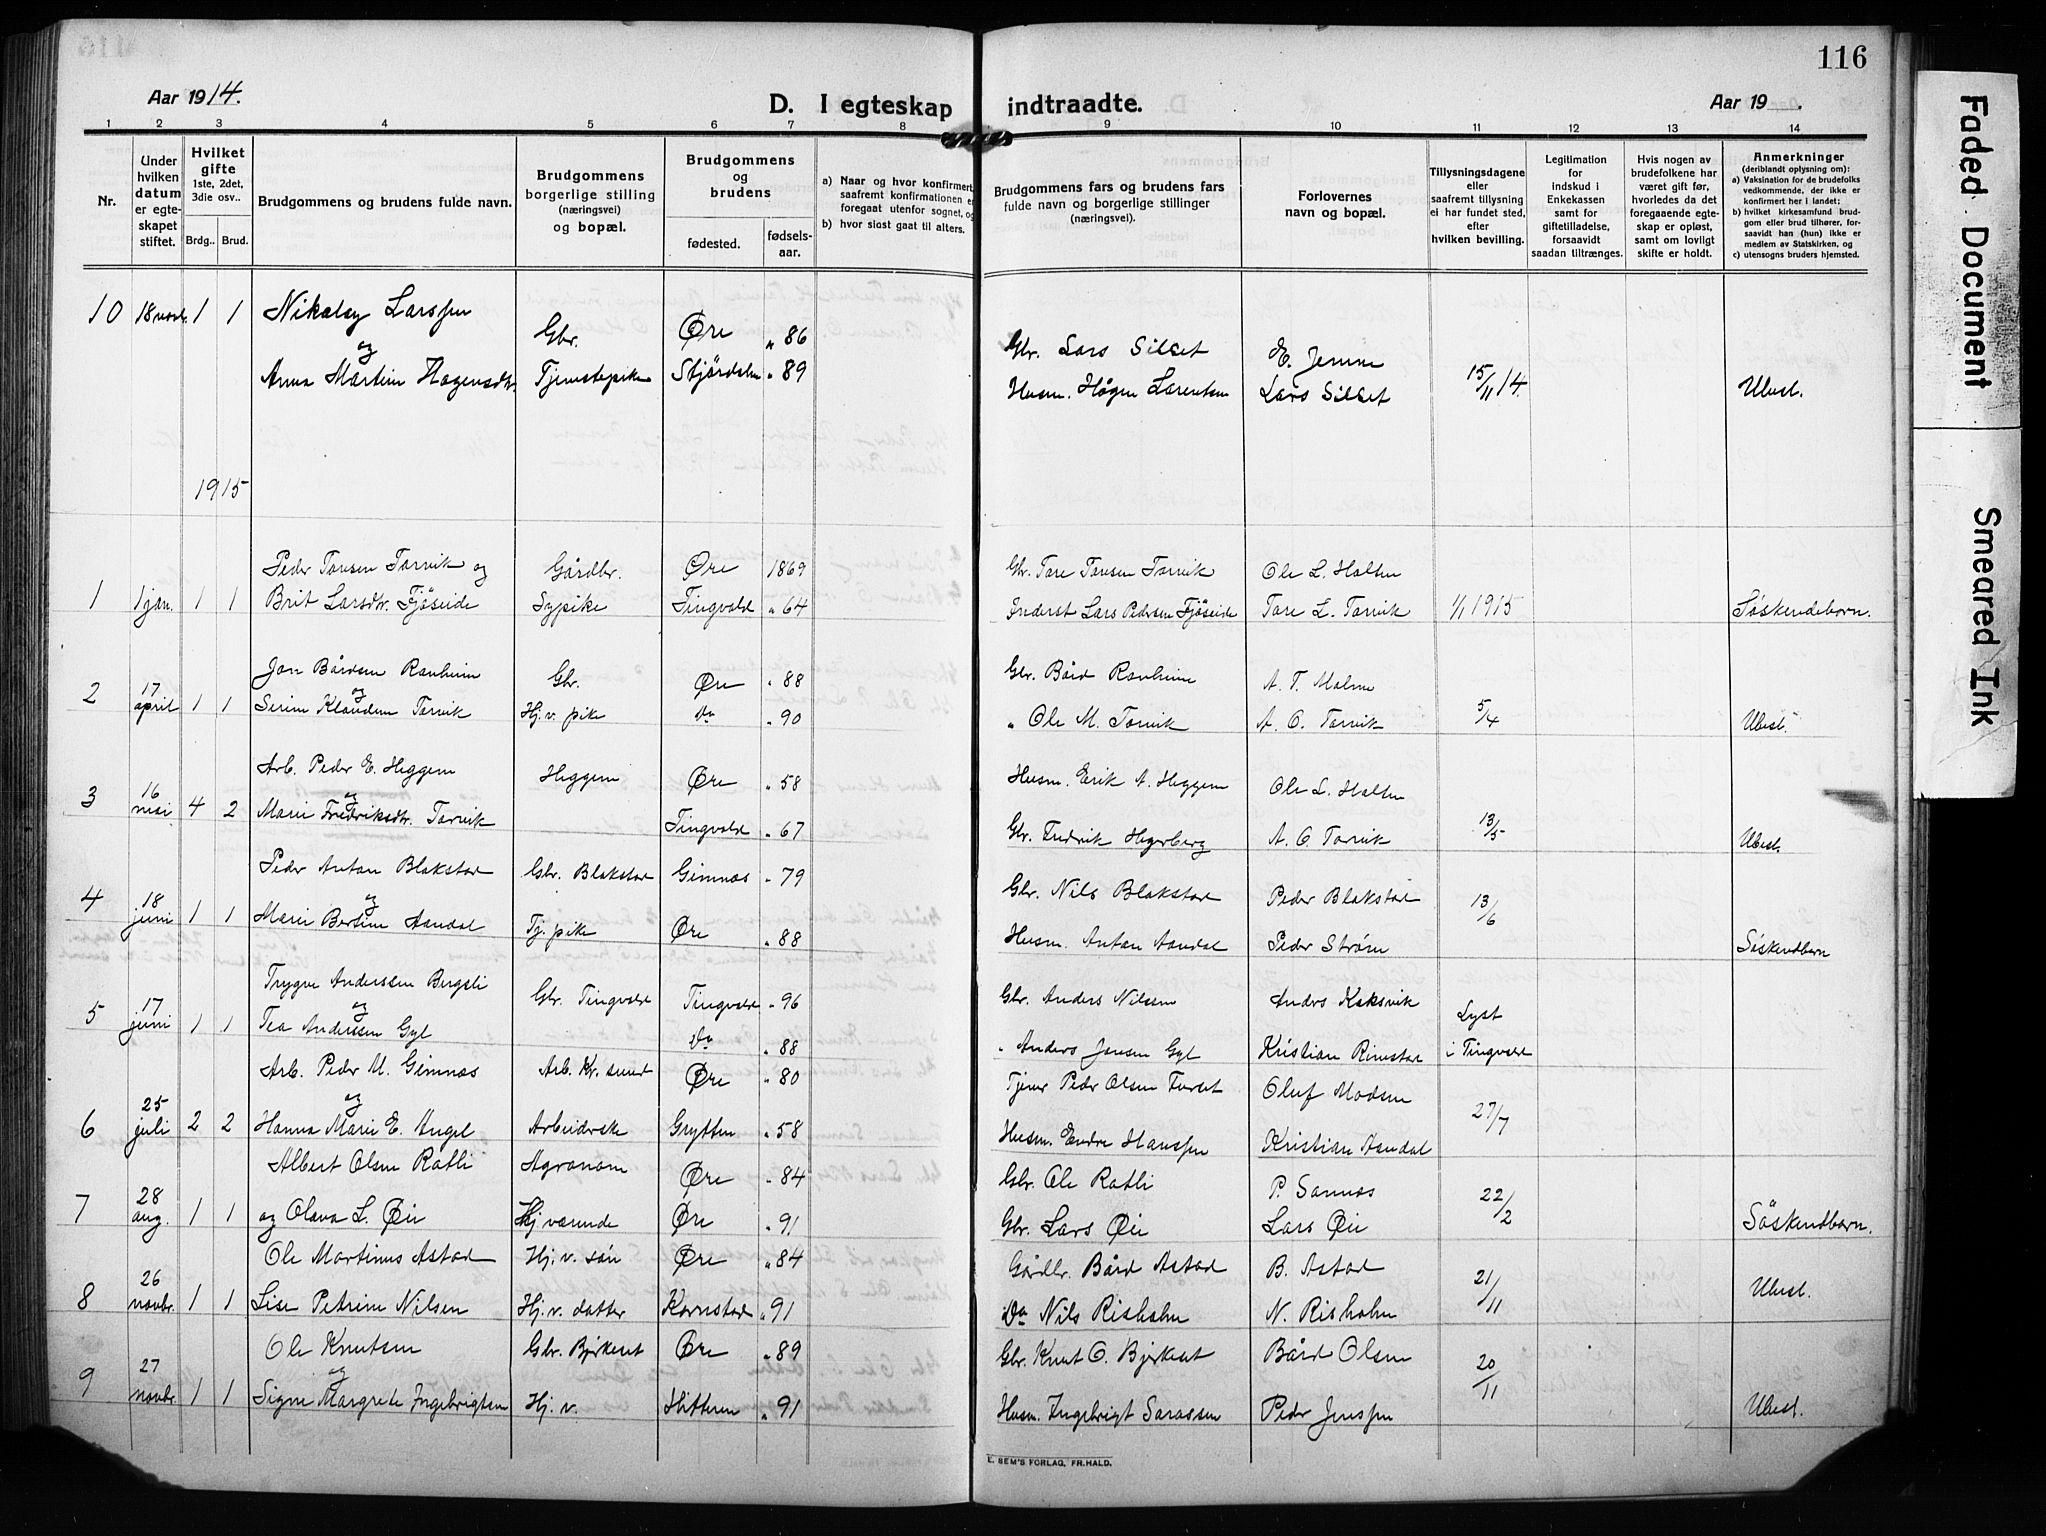 116
Aar 1914.
D. I egteskap indtraadte.
Aar 19 .
1 2 3 4 5 6 7 8 9 10 11 12 13 14
Nr.
Under hvilken datum er egteskapet stiftet.
Hvilket gifte 1ste, 2det, 3die osv..
Brdg.. Brud.
Brudgommens og brudens fulde navn.
Brudgommens borgerlige stilling (næringsvei) og bopæl.
Brudgommens og brudens
fødested. fødselsaar.
a) Naar og hvor konfirmert, saafremt konfirmationen er foregaat utenfor sognet, og
b) hvor sidst gaat til alters.
Brudgommens fars og brudens fars fulde navn og borgerlige stillinger (næringsvei).
Forlovernes navn og bopæl.
Tillysningsdagene eller saafremt tillysning ei har fundet sted, efter hvilken bevilling.
Legitimation for indskud i Enkekassen samt for giftetilladelse, forsaavidt saadan tiltrænges.
Hvis nogen av brudefolkene har været gift før, hvorledes da det foregaaende egteskap er opløst, samt om lovligt skifte er holdt.
Anmerkninger (deriblandt oplysning om):
a) Vaksination for de brudefolks vedkommende, der ikke er konfirmert her i landet;
b) hvilket kirkesamfund brudgom eller brud tilhører, forsaavidt han (hun) ikke er medlem av Statskirken, og
c) utensogns bruders hjemsted.
10 18 novb. 1 1 Nikolay Larssen Gbr. Øre " 86 Gbr. Lars Silset E. Jenne
og
Anna Martine Hagensdtr. Tjenestepike Stjørdalen " 89 Husm. Hågen Larentsen Lars Silset 15/11 14. Ubesl.
1915
Peder Toresen Torvik og Gårdbr. Øre 1869 Gbr. Tore Toresen Torvik Ole L. Holten
1 1 jan. 1 1 Brit Larsdtr. Fjøseide Sypike Tingvold " 64 Inderst Lars Pedersen Fjøseide Tore L. Torvik 1/1 1915 Søskendebarn.
Jon Bårdsen Ranheim Gbr. Øre " 88 Gbr. Bård Ranheim A. T. Malme
og
2 17 april 1 1 Serine Torvik Hj. v. pike do " 90 " Ole M. Torvik A. O. Torvik 5/4 Ubesl.
Arb. Peder E. Heggem Heggem Øre " 58 Husm. Erik A. Heggem Ole L. Holten
og
3 16 mai 4 2 Marie Fredriksdtr. Torvik Tingvold " 67 Gbr. Fredrik Hegerberg A. O. Torvik 13/5 Ubesl.
Peder Anton Blakstad Gbr. Blakstad Gimnæs " 79 Gbr. Nils Blakstad Peder Blakstad
og
4 18 juni 1 1 Marie Bertine Aandal Tj. pike Øre " 88 Husm. Anton Aandal Peder Strøm 13/6 Søskendbarn
Trygve Anderssen Bergsli Gbr. Tingvold Tingvold " 96 Gbr. Anders Nilssen Anders Koksvik
og
5 17 juni 1 1 Tea Anderssen Gyl Do " 88 " Anders Jonsen Gyl Kristian Rimstad Lyst i Tingvold
Arb. Peder M. Gimnæs Arb. Kr. sund Øre " 80 Tjener Peder Olsen Furset Oluf Madsen
og
6 25 juli 2 2 Hanna Marie E. Angel Arbeiderske Grytten " 58 Husm. Endre Hanssen Kristian Aandal 27/7
Albert Olsen Rotli Agronom Øre " 84 Gbr. Ole Rotli P. Sannæs
7 28 aug. 1 1 og Olava L. Øie Hj værende Øre " 91 Gbr. Lars Øie Lars Øie 22/2 Søskendbarn.
Ole Martinus Astad Hj. v. søn Øre " 84 Gårdbr. Bård Astad B. Astad
8 26 novbr. 1 1 Lise Petrine Nilsen Hj. v. datter Kornstad " 91 Do Nils Risholm N. Risholm 21/11 Ubesl.
Ole Knutsen Gbr. Bjerkeset Øre " 89 Gbr. Knut O. Bjerkeset Bård Olsen
og
9 27 novbr. 1 1 Signe Margrete Ingebrigtsen Hj. v. Hitteren " 91 Husm. Ingebrigt Sarassen Peder Jenssen 20/11 Ubesl.
E. SEM'S FORLAG, FR.HALD.
Faded Document
Smeared Ink